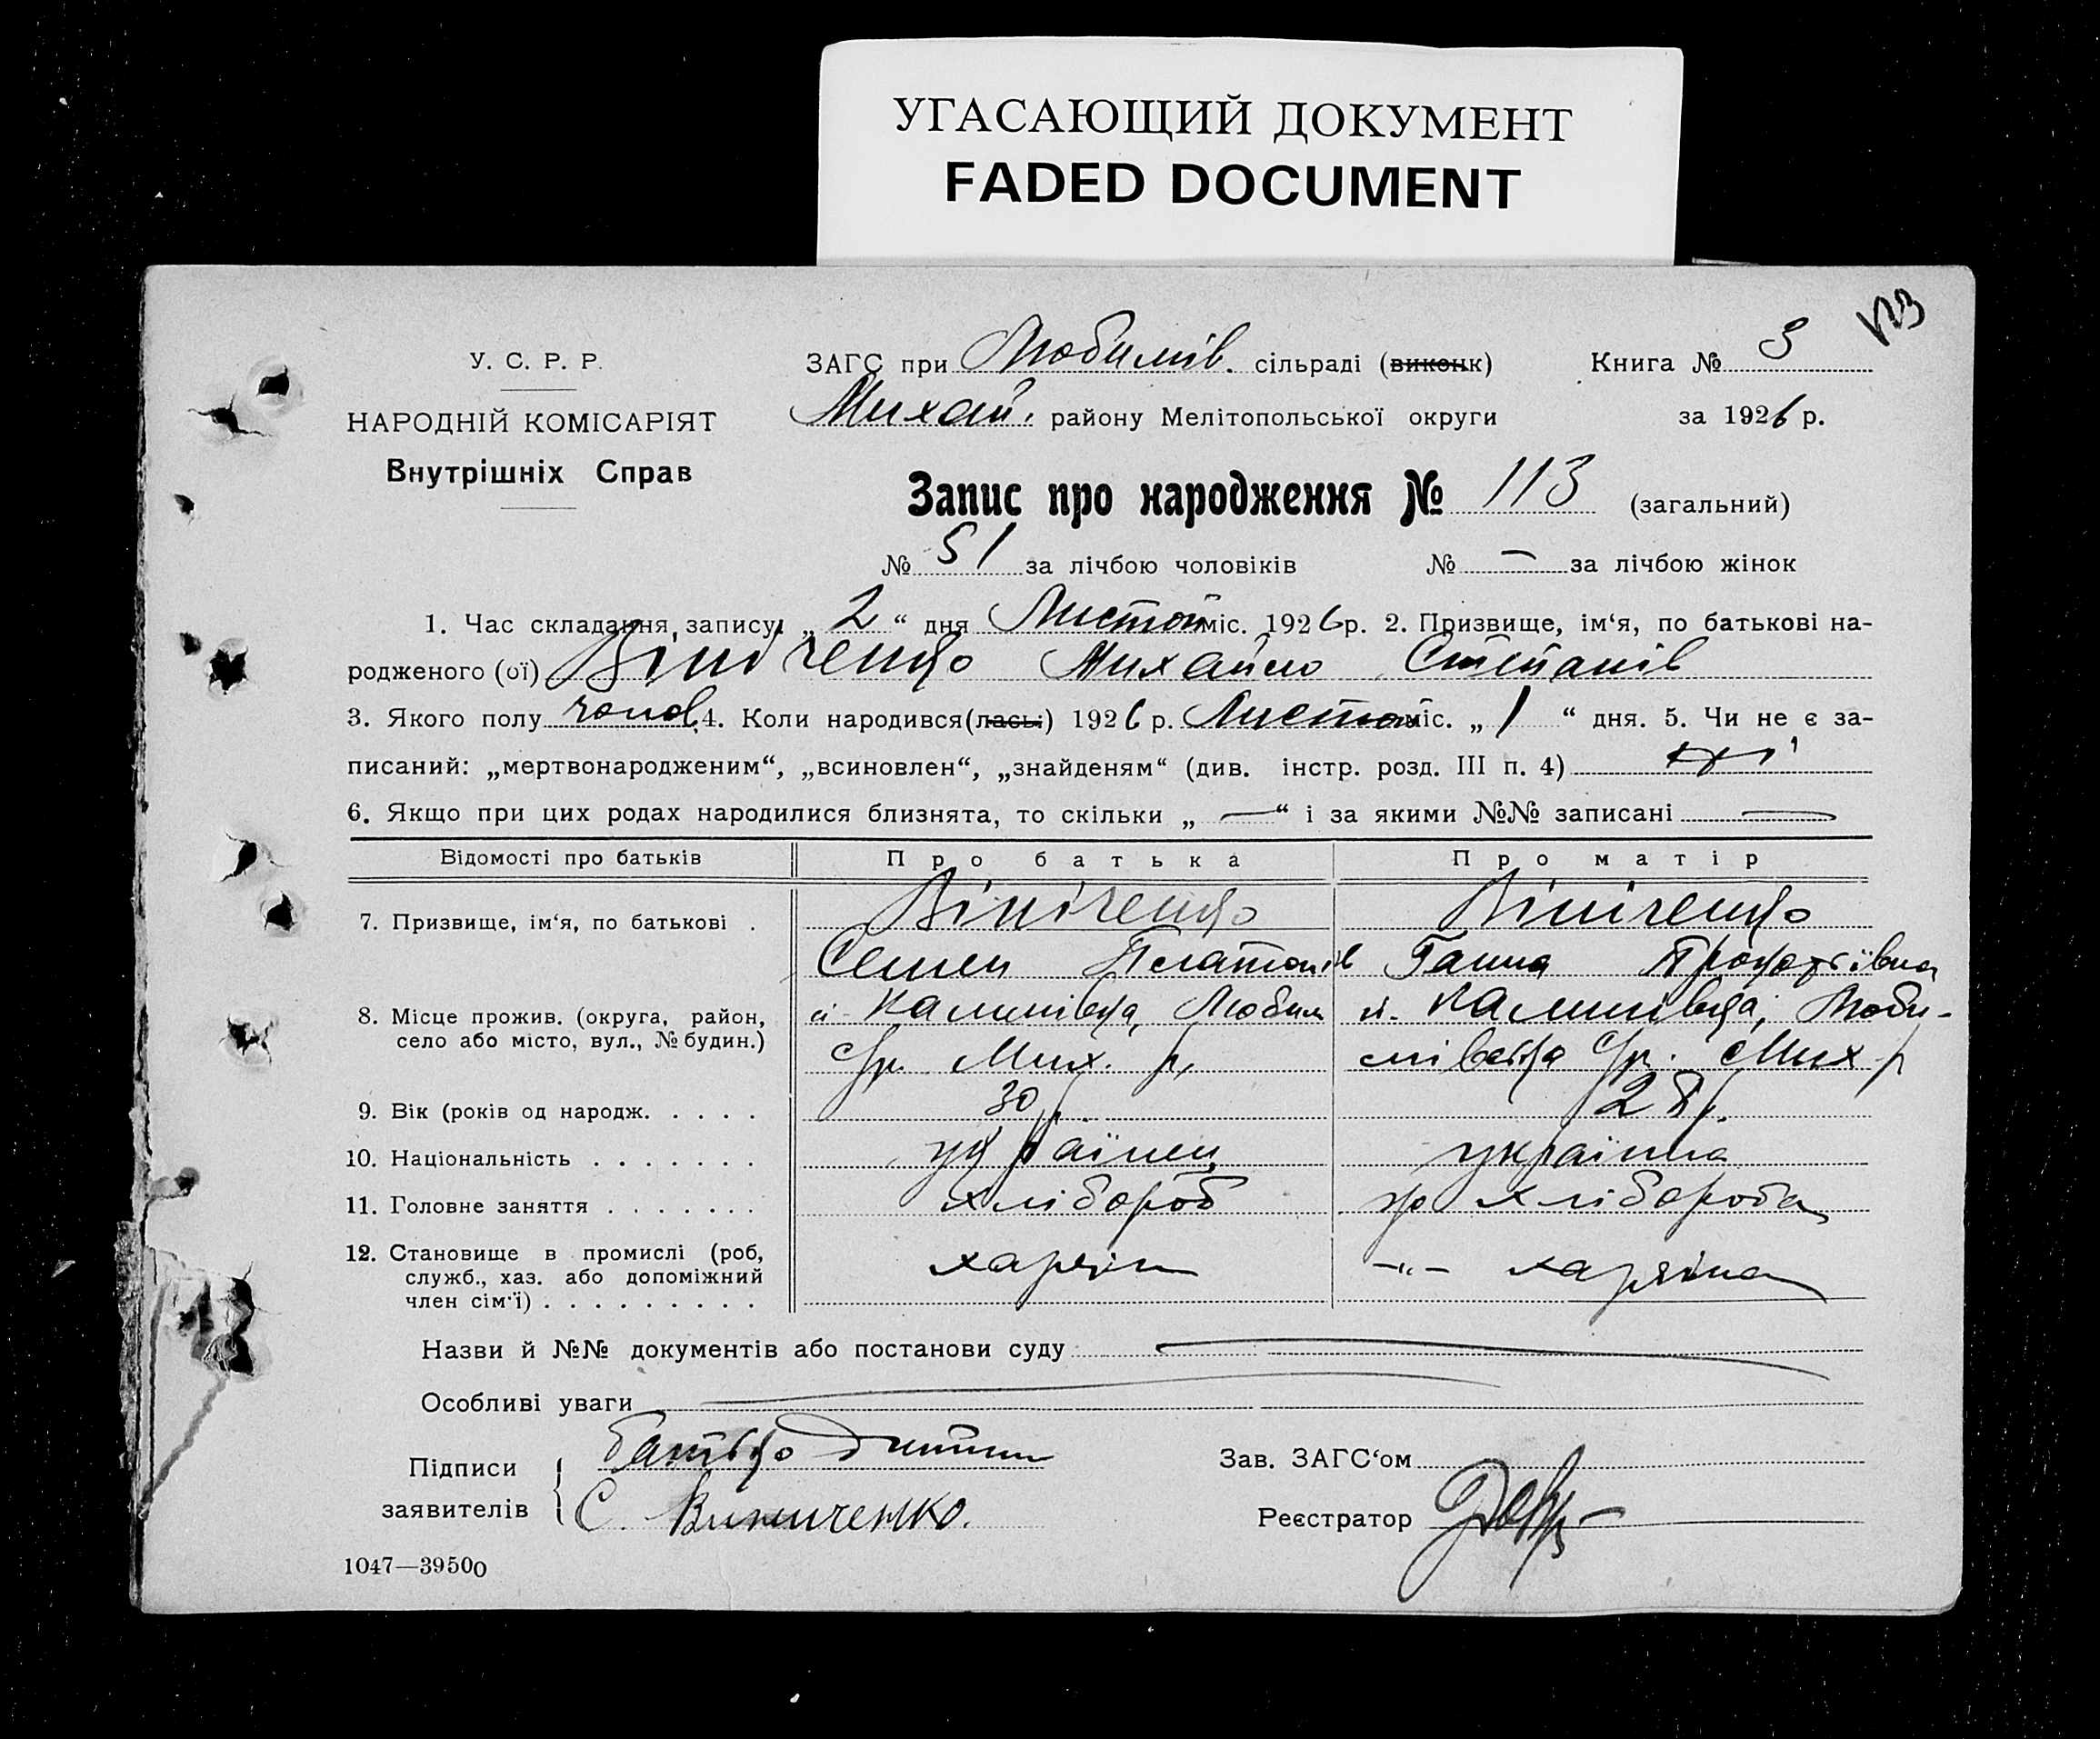 УГАСАЮЩИЙ ДОКУМЕНТ
FADED DOCUMENT
113
У. С. Р. Р.
НАРОДНІЙ КОМІСАРІЯТ
Внутрішніх Справ
ЗАГС при Любимів. сільраді (виконк) Книга № 3
Михай. району Мелітопольської округи за 1926 р.
Запис про народження № 113 (загальний)
№ 51 за лічбою чоловіків № — за лічбою жінок
1. Час складання запису: „ 2 “ дня Листоп міс. 1926 р. 2. Призвище, ім‘я, по батькові на-
родженого (ої) Вініченко Михайло Степанів
3. Якого полу чолов. 4. Коли народився(лась) 1926 р. Листоп міс. „ 1 “ дня. 5. Чи не є за-
писаний: „мертвонародженим“, „всиновлен“, „знайденям“ (див. інстр. розд. III п. 4) ні
6. Якщо при цих родах народилися близнята, то скільки „ — “ і за якими №№ записані —
Відомості про батьків Про батька Про матір
7. Призвище, ім‘я, по батькові . Вініченко Вініченко
Семен Платонів Ганна
8. Місце прожив. (округа, район, село або місто, вул., № будин.) с. Калинівка, Любим с. Калинівка, Люби-
с/р. Мих. р, мівська с/р. Мих р
9. Вік (років од народж. . . . . 30 р. 28 р.
10. Національність . . . . . . . українец українка
11. Головне заняття . . . . . . . хлібороб хлібороба
12. Становище в промислі (роб, служб., хаз. або допоміжний член сім‘ї) . . . . . . . . . хазяїн -"- хазяїна
Назви й №№ документів або постанови суду —
Особливі уваги —
Підписи заявителів { батько дитини
С. Виниченко.
Зав. ЗАГС‘ом
Реєстратор
1047—39500